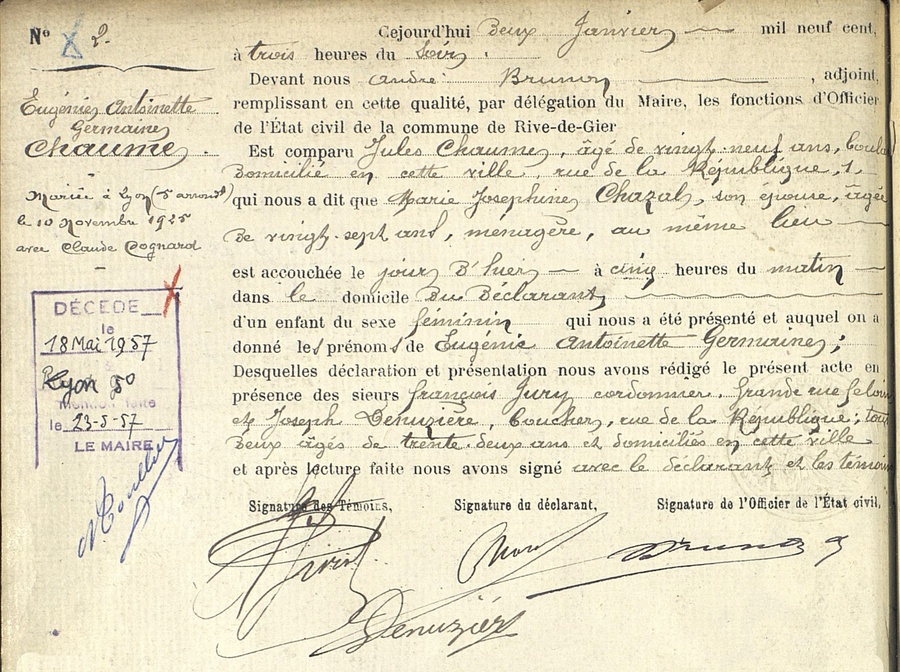 Nº 2.
Cejourd'hui Deux Janvier mil neuf cent,
à trois heures du Soir.
Devant nous André Brunon, adjoint,
remplissant en cette qualité, par délégation du Maire, les fonctions d'Officier
de l'État civil de la commune de Rive-de-Gier
Est comparu Jules Chaume, âgé de vingt-neuf ans,
Domicilié en cette ville, rue de la République, 1,
qui nous a dit que Marie Joséphine Chazal, son épouse, âgée
de vingt-sept ans, ménagère, au même lieu
est accouchée le jour d'hier à cinq heures du matin
dans le domicile du Déclarant
d'un enfant du sexe féminin qui nous a été présenté et auquel on a
donné les prénoms de Eugénie Antoinette Germaine;
Desquelles déclaration et présentation nous avons rédigé le présent acte en
présence des sieurs françois Jury cordonnier, Grande rue feloin
et Joseph Denuzière, rue de la République; tous
deux âgés de trente-deux ans et domiciliés en cette ville
et après lecture faite nous avons signé avec le déclarant et les témoins
Signature des Témoins, Signature du déclarant, Signature de l'Officier de l'État civil,
Denuzière
Eugénie Antoinette
Germaine
Chaume.
Mariée à Lyon (5 arrondt)
le 10 Novembre 1925
avec Claude Cognard
DÉCÉDÉ
le
18 Mai 1957
Lyon 5º
Mention faite
le 23-5-57
LE MAIRE